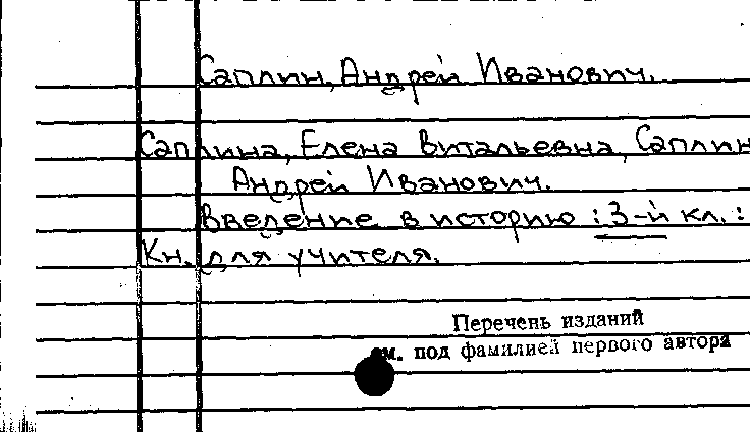 Саплин, Андрей Иванович.
Саплина, Елена Витальевна, Саплин
Андрей Иванович.
Введение в историю : 3-й кл. :
Кн. для учителя.
Перечень изданий
см. под фамилией первого автора